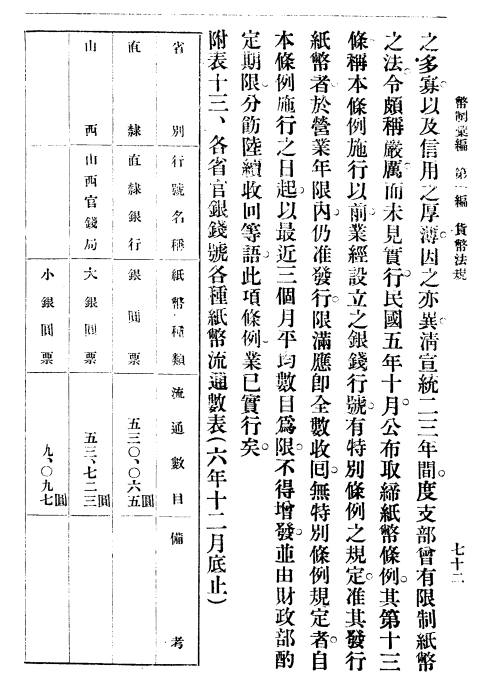 幣制彙編　第一編　貨幣法規
七十二
之多寡以及信用之厚薄因之亦異清宣統二三年間度支部曾有限制紙幣
之法令頗稱嚴厲而未見實行民國五年十月公布取締紙幣條例其第十三
條稱本條例施行以前業經設立之銀錢行號有特別條例之規定准其發行
紙幣者於營業年限內仍准發行限滿應卽全數收回無特別條例規定者自
本條例施行之日起以最近三個月平均數目爲限不得增發並由財政部酌
定期限分飭陸續收回等語此項條例業已實行矣
附表十三、各省官銀錢號各種紙幣流通數表（六年十二月底止）
省別　行號名稱　紙幣種類　流通數目　備考
直隸　直隸銀行　銀圓票　五三〇、〇六五圓
山西　山西官錢局　大銀圓票　五三、七二三圓
小銀圓票　九、〇九七圓